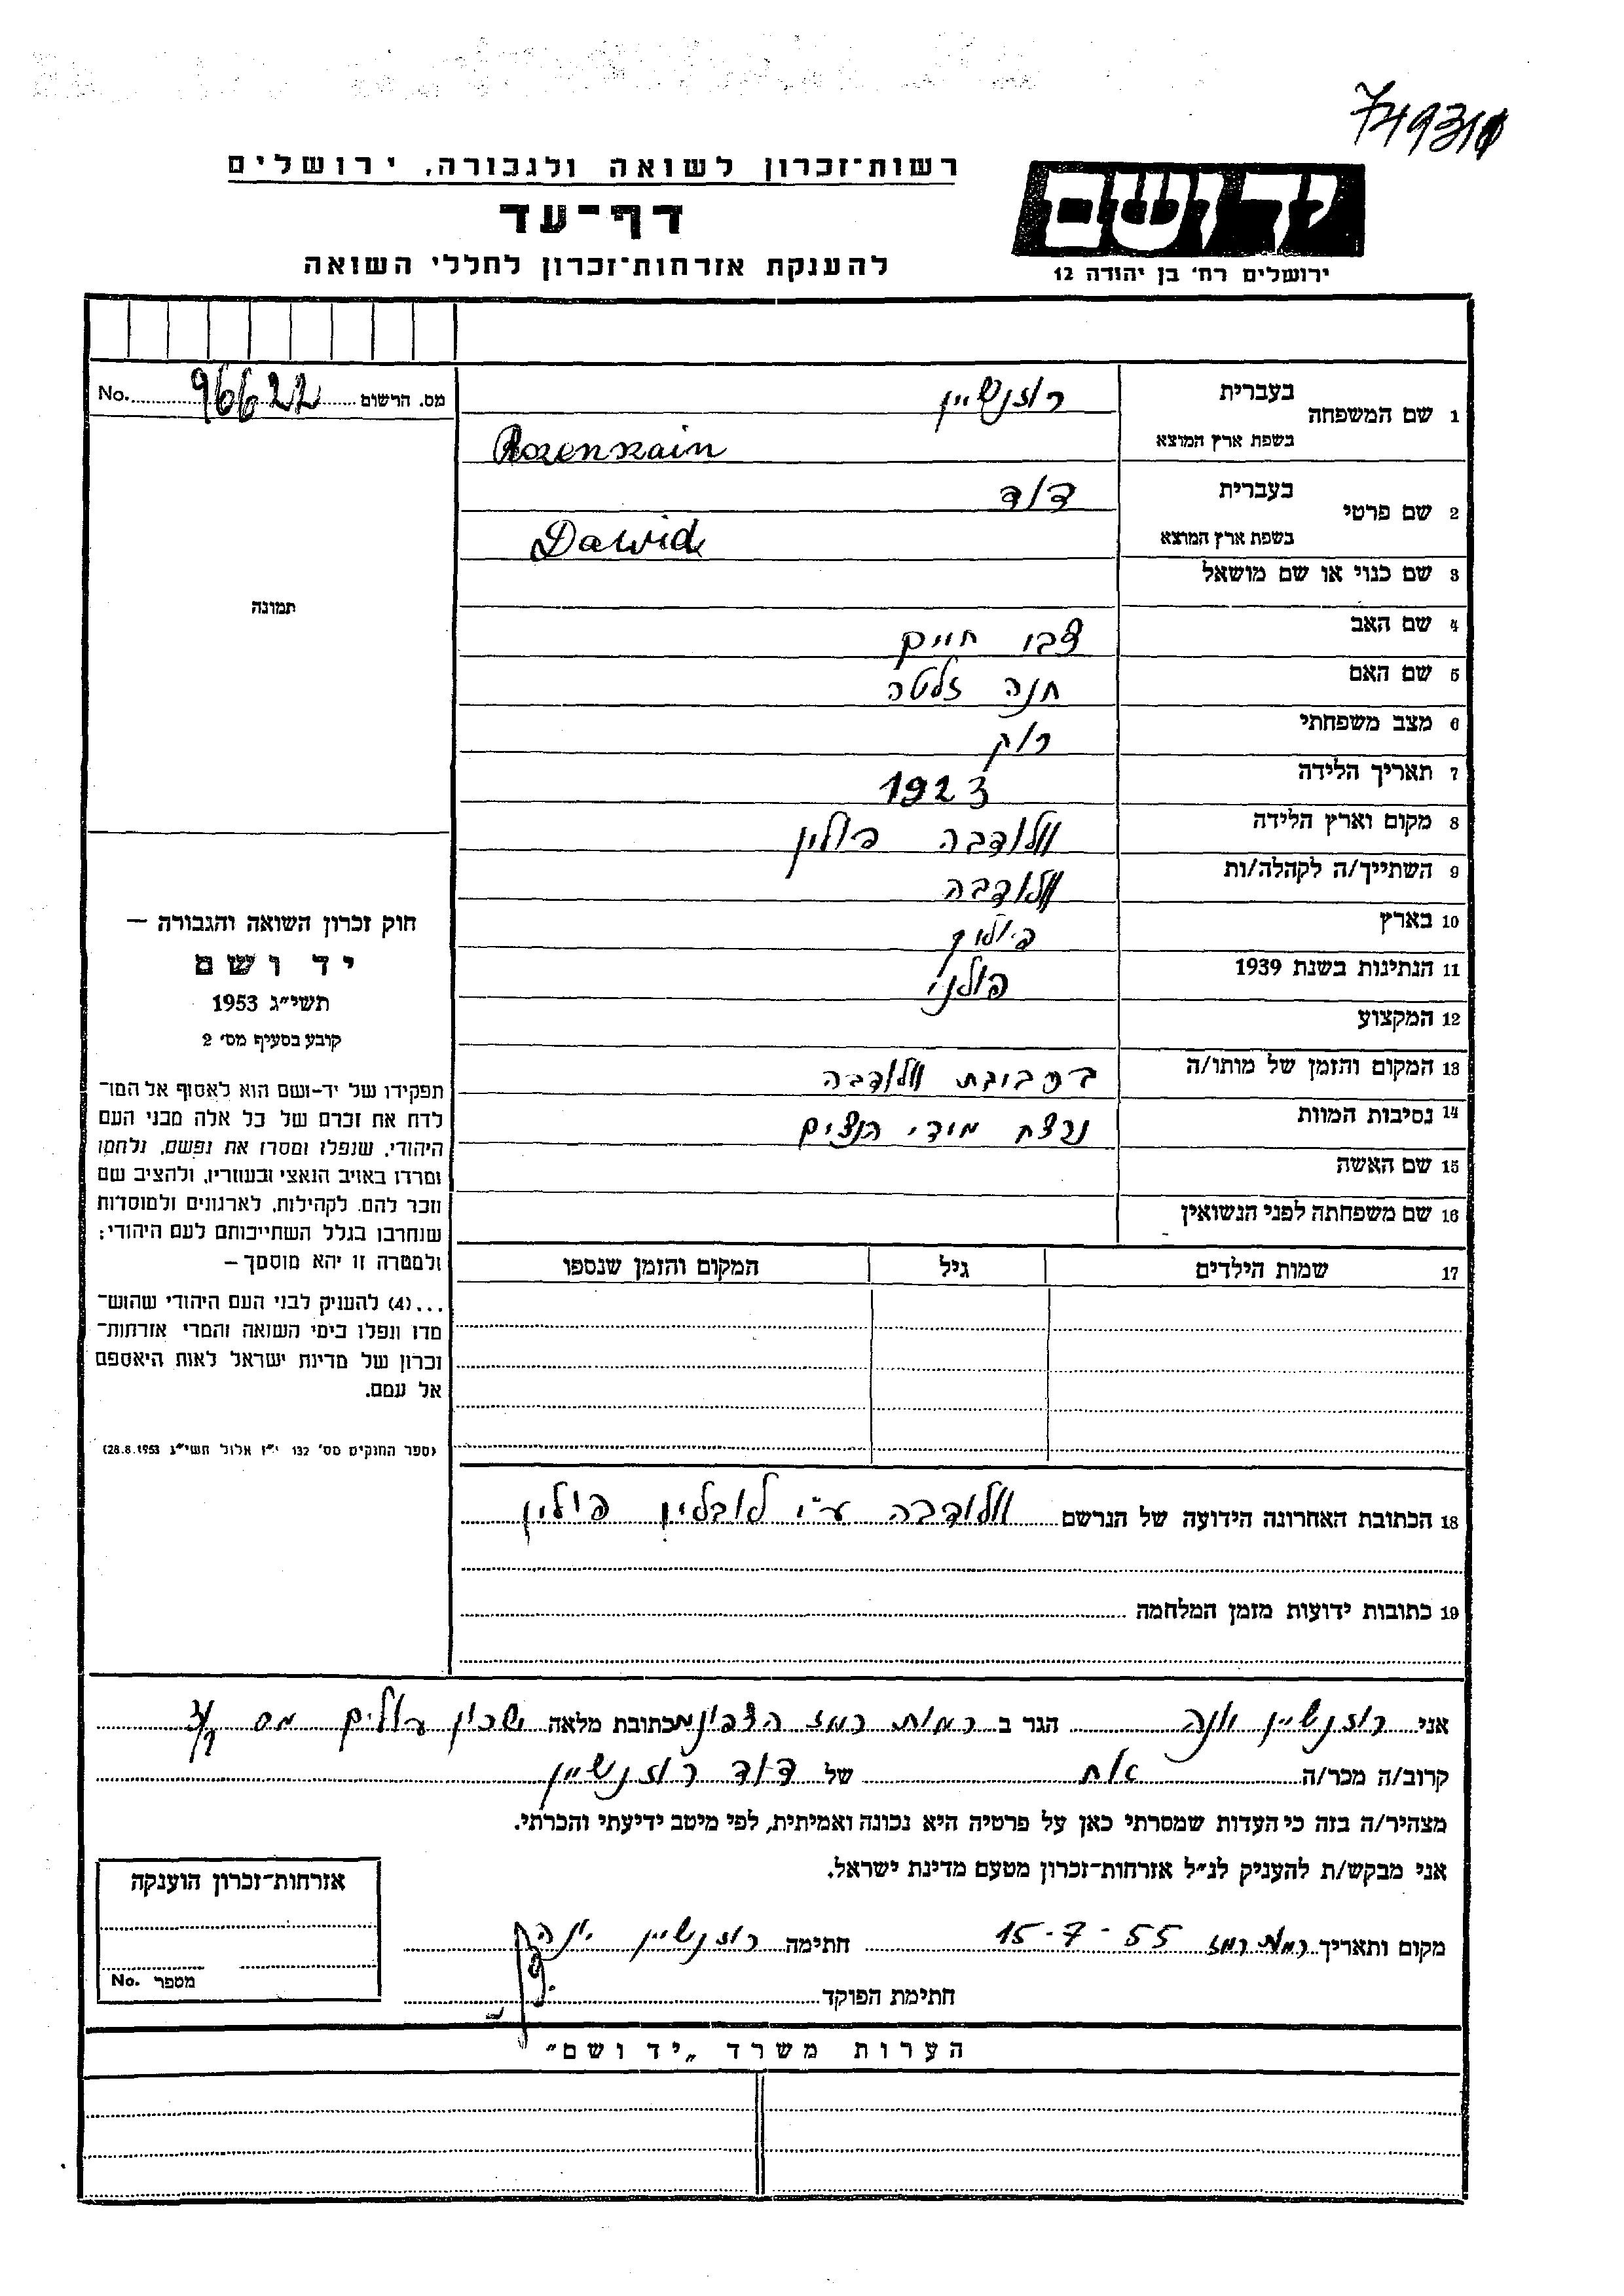 749310
רשות־זכרון לשואה ולגבורה, ירושלים
דף־עד
להענקת אזרחות־זכרון לחללי השואה
יד ושם
ירושלים רח׳ בן יהודה 12
מס. הרשום 96622 No.
תמונה
1 שם המשפחה בעברית רוזנשיין
בשפת ארץ המוצא Rozenszain
2 שם פרטי בעברית דוד
בשפת ארץ המוצא Dawid
3 שם כנוי או שם מושאל
4 שם האב צבי חיים
5 שם האם חנה זלטה
6 מצב משפחתי רוק
7 תאריך הלידה 1923
8 מקום וארץ הלידה וולודבה פולין
9 השתייך/ה לקהלה/ות וולודבה
10 בארץ פולין
11 הנתינות בשנת 1939 פולני
12 המקצוע
13 המקום והזמן של מותו/ה בסביבת וולודבה
14 נסיבות המוות נרצח מידי הנצים
15 שם האשה
16 שם משפחתה לפני הנשואין
17 שמות הילדים גיל המקום והזמן שנספו
חוק זכרון השואה והגבורה —
יד ושם
תשי״ג 1953
קובע בסעיף מס׳ 2
תפקידו של יד-ושם הוא לאסוף אל המו־
לדת את זכרם של כל אלה מבני העם
היהודי, שנפלו ומסרו את נפשם, נלחמו
ומרדו באויב הנאצי ובעוזריו, ולהציב שם
וזכר להם, לקהילות, לארגונים ולמוסדות
שנחרבו בגלל השתייכותם לעם היהודי;
ולמטרה זו יהא מוסמך —
...(4) להעניק לבני העם היהודי שהוש־
מדו ונפלו בימי השואה והמרי אזרחות־
זכרון של מדינת ישראל לאות היאספם
אל עמם.
(ספר החוקים מס׳ 132 י״ז אלול תשי״ג 28.8.1953)
18 הכתובת האחרונה הידועה של הנרשם וולודבה ע״י לובלין פולין
19 כתובות ידועות מזמן המלחמה
אני רוזנשיין יונה הגר ב רמות רמז הצפונית כתובת מלאה שכון עולים מס
קרוב/ה מכר/ה אח של דוד רוזנשיין
מצהיר/ה בזה כי העדות שמסרתי כאן על פרטיה היא נכונה ואמיתית, לפי מיטב ידיעתי והכרתי.
אני מבקש/ת להעניק לנ״ל אזרחות־זכרון מטעם מדינת ישראל.
מקום ותאריך רמת רמז 15-7-55 חתימה רוזנשיין יונה
חתימת הפוקד
אזרחות־זכרון הוענקה
מספר No.
הערות משרד „יד ושם״